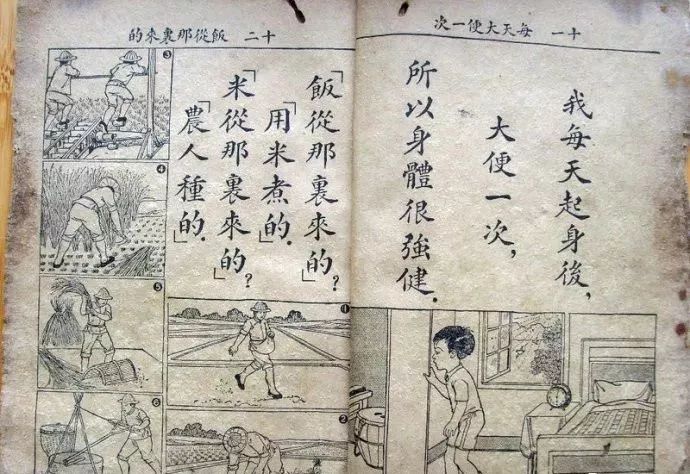 十一 每天大便一次
我每天起身後，
大便一次，
所以身體很強健．
十二 飯從那裏來的
「飯從那裏來的」？
「用米煮的」．
「米從那裏來的」？
「農人種的」．
1
2
3
4
5
6